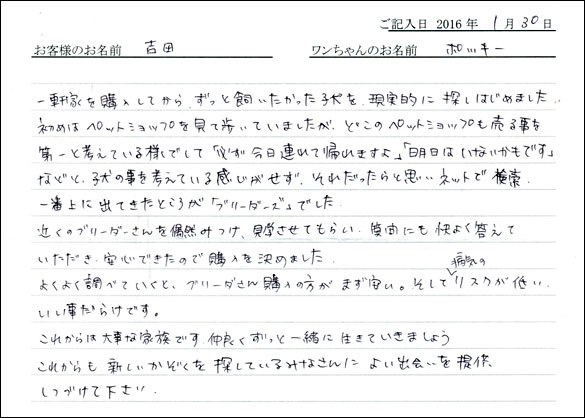 ご記入日 2016 年 1 月 30 日
お客様のお名前 吉田 ワンちゃんのお名前 ポッキー
一軒家を購入してから ずっと飼いたかった子犬を 現実的に 探しはじめました
初めは ペットショップを見て歩いていましたが、どこのペットショップも売る事を
第一と考えている様でして「必ず今日連れて帰れますよ」「明日は いないかもです」
などと、子犬の事を考えている感じがせず、それだったらと思い ネットで検索
一番上に出てきたところが「ブリーダーズ」でした
近くのブリーダーさんを偶然みつけ、見学させてもらい、質問にも 快よく答えて
いただき、安心できたので 購入を決めました
よくよく調べていくと、ブリーダさん購入の方が まず安い。そして 病気の リスクが低い
いい事だらけです。
これからは大事な家族です 仲良くずっと一緒に 生きていきましょう
これからも 新しいかぞくを 探しているみなさんに よい出会いを提供
しつづけて下さい